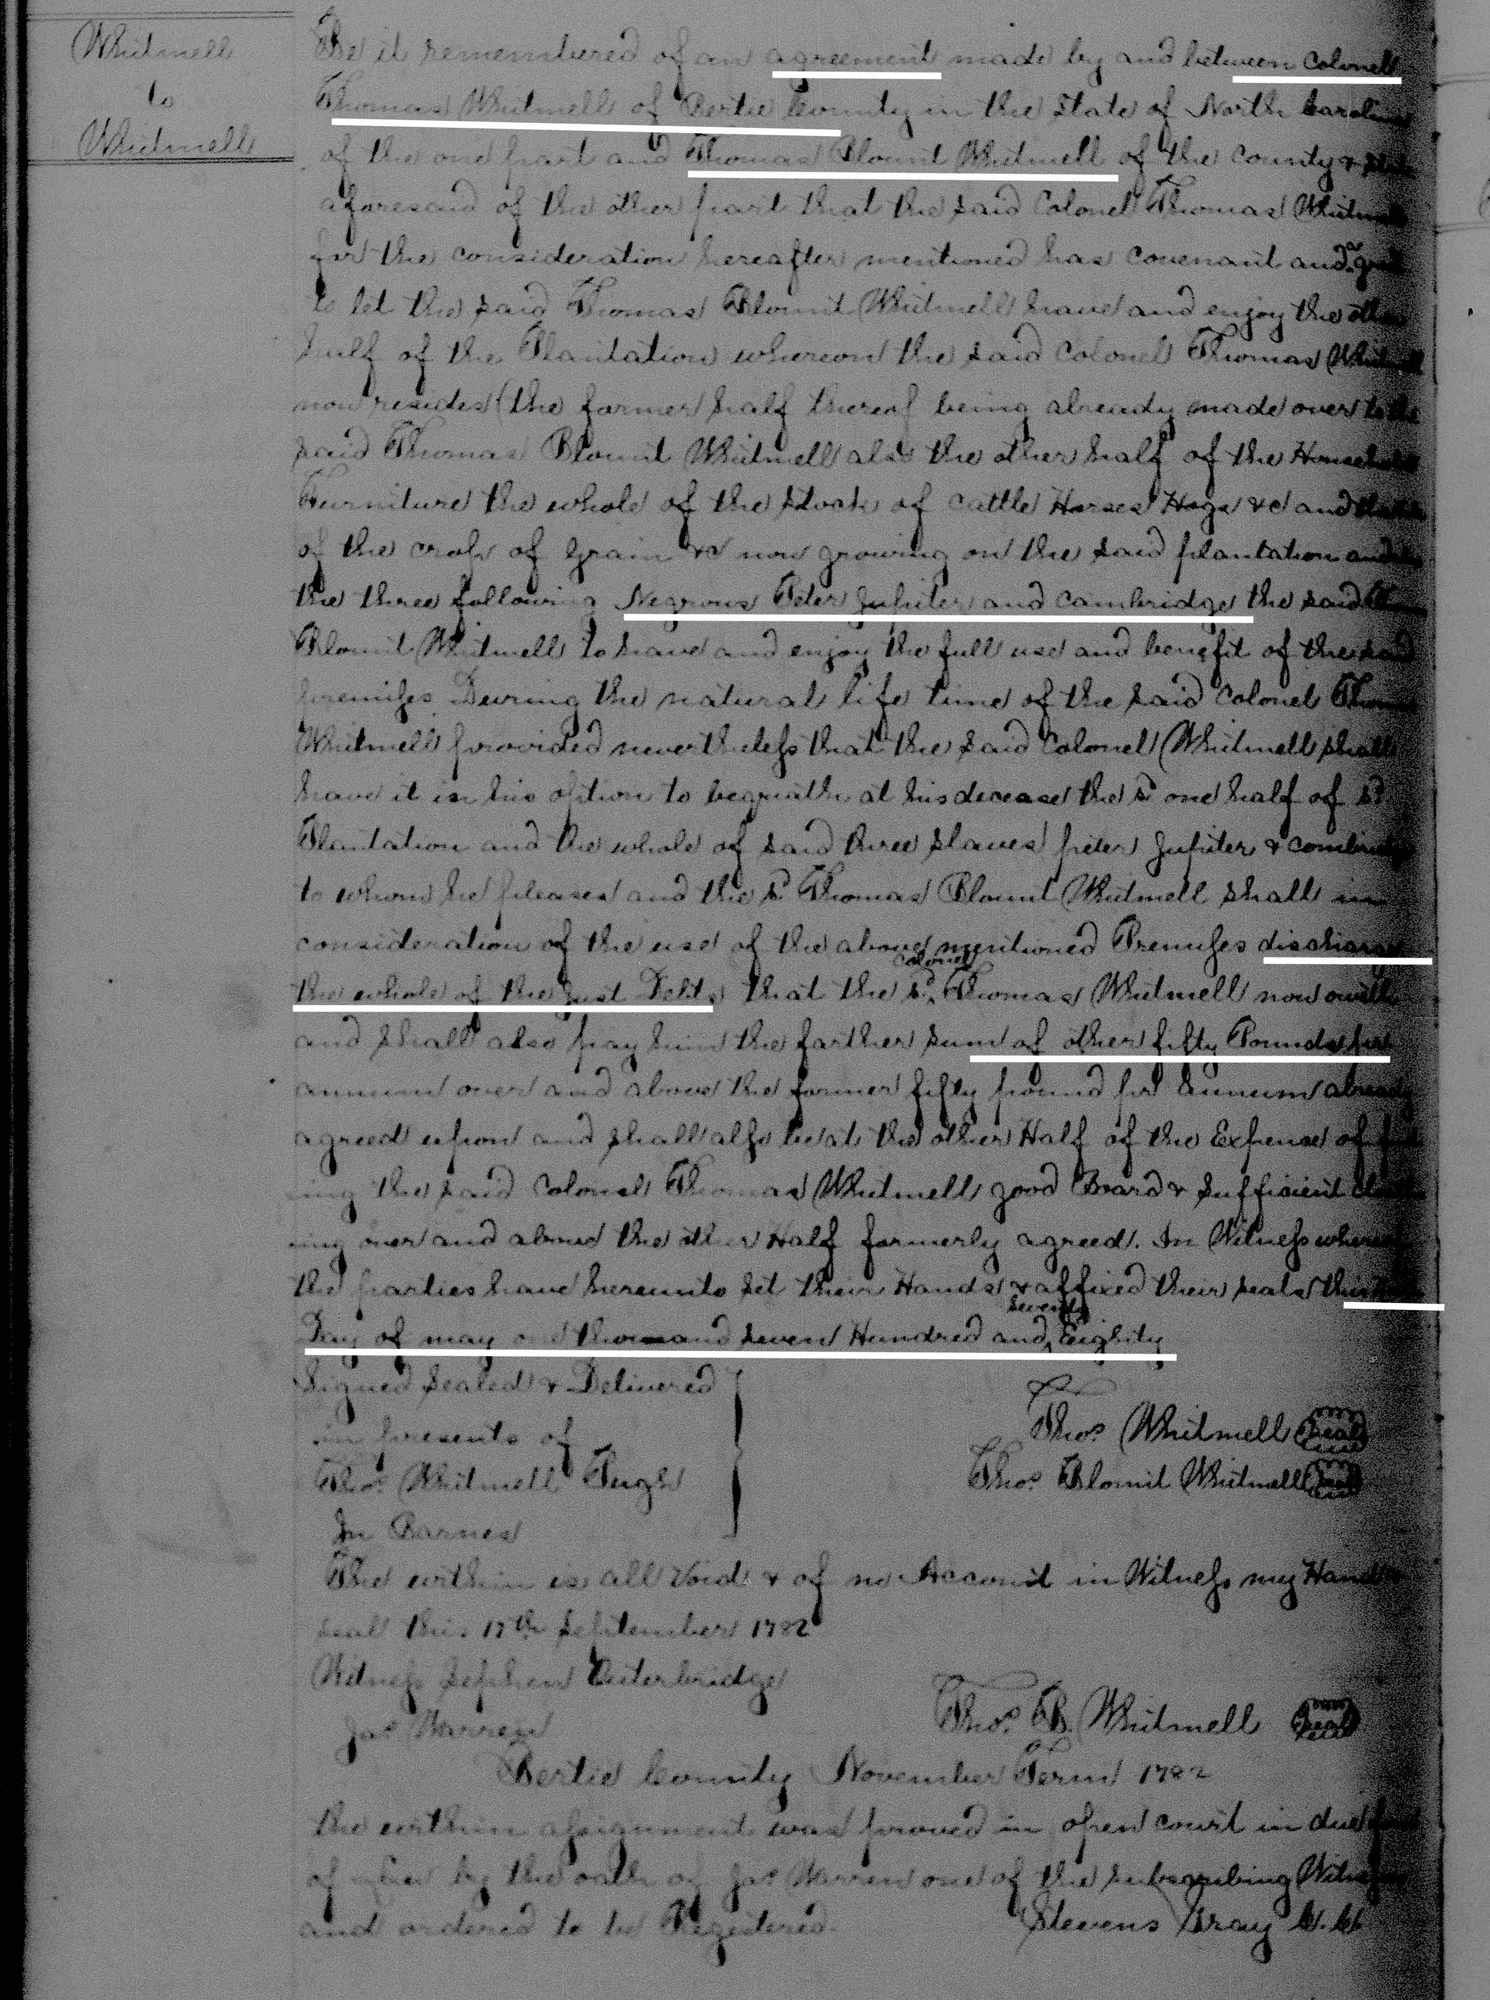 Whitmell
to
Whitmell
Be it remembered of an agreement made by and between Colonel
Thomas Whitmell of Bertie County in the State of North Carolina
of the one part and Thomas Blount Whitmell of the County &
aforesaid of the other part that the said Colonel Thomas Whitmell
for the consideration hereafter mentioned has Covenant and
to let the said Thomas Blount Whitmell have and enjoy the other
half of the Plantation whereon the said Colonel Thomas Whitmell
now resides (the former half thereof being already made over to the
said Thomas Blount Whitmell also the other half of the Household
Furniture the whole of the stock of Cattle Horses Hogs &c and
of the crop of Grain &c now growing on the said plantation and
the three following Negroes Peter Jupiter and Cambridge the said
Blount Whitmell to have and enjoy the full use and benefit of the said
premises During the natural life time of the said Colonel Thomas
Whitmell provided nevertheless that the said Colonel Whitmell shall
have it in his option to bequath at his decease the sd one half of sd
Plantation and the whole of said three slaves peter Jupiter &
to whom he pleases and the sd Thomas Blount Whitmell shall in
consideration of the use of the above mentioned Premises discharge
the whole of the just Debts that the sd Colonel Thomas Whitmell now
and shall also pay him the farther sum of other fifty Pounds pr
annum over and above the former fifty pound pr Annum already
agreed upon and shall also be at the other Half of the Expense of
ing the said Colonel Thomas Whitmell good Board & Sufficient
ing over and above the other Half formerly agreed. In Witness whereof
the parties have hereunto set their Hands & affixed their seals this
Day of may one thousand seven Hundred and seventy Eighty
Signed Sealed & Delivered
in presents of
Thos. Whitmell Pugh
Jn Barnes
Thos. Whitmell Seal
Thos. Blount Whitmell Seal
The within is all Void & of no Account in Witness my Hand
seal this 17th September 1782
Witness Sephen Outerbridge
Jas Warren
Thos. B. Whitmell Seal
Bertie County November Term 1782
the within assignment was proved in open court in due
of by the oath of Jas Warren one of the subscribing
and ordered to be Registered.
Stevens Gray C.C